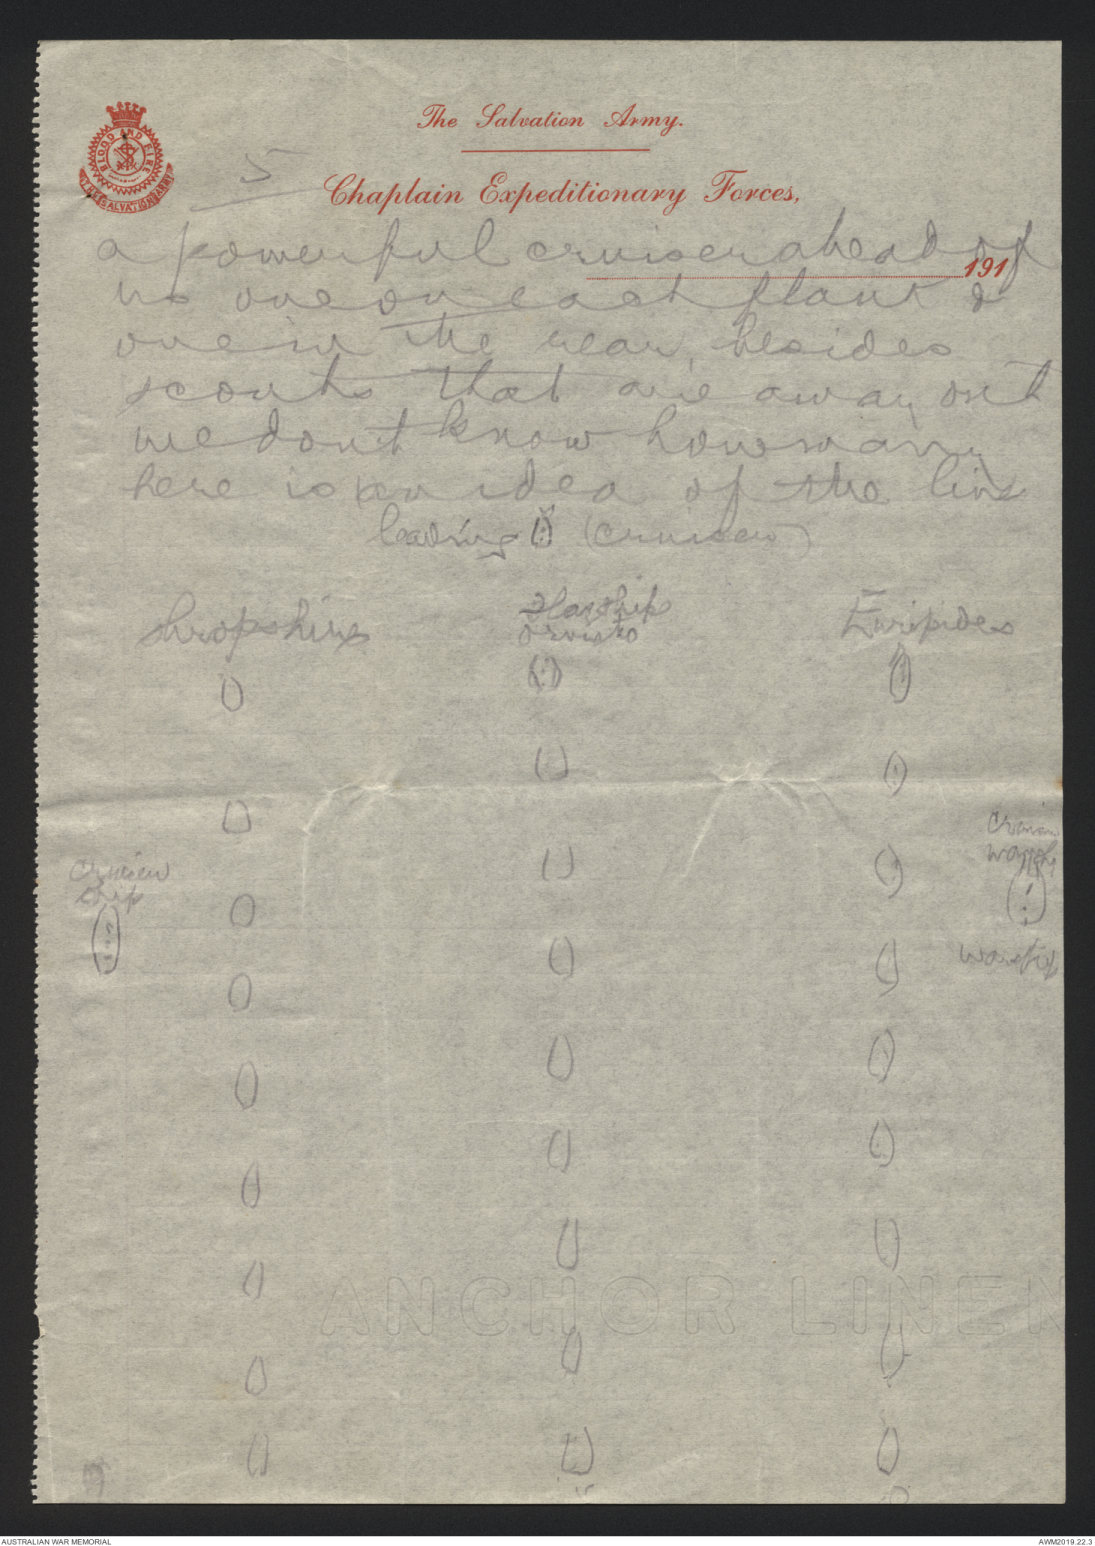 The Salvation Army.
BLOOD AND FIRE
THE SALVATION ARMY
5
Chaplain Expeditionary Forces,
191
a powerful cruiser ahead of
us one on each flank &
one in the rear, besides
scouts that are away out
we don't know how many
here is an idea of the line
leading (cruiser)
Shropshire
Flagship
Orvieto
Euripides
cruiser
ship
warship
ANCHOR LINEN
AUSTRALIAN WAR MEMORIAL
AWM2019.22.3